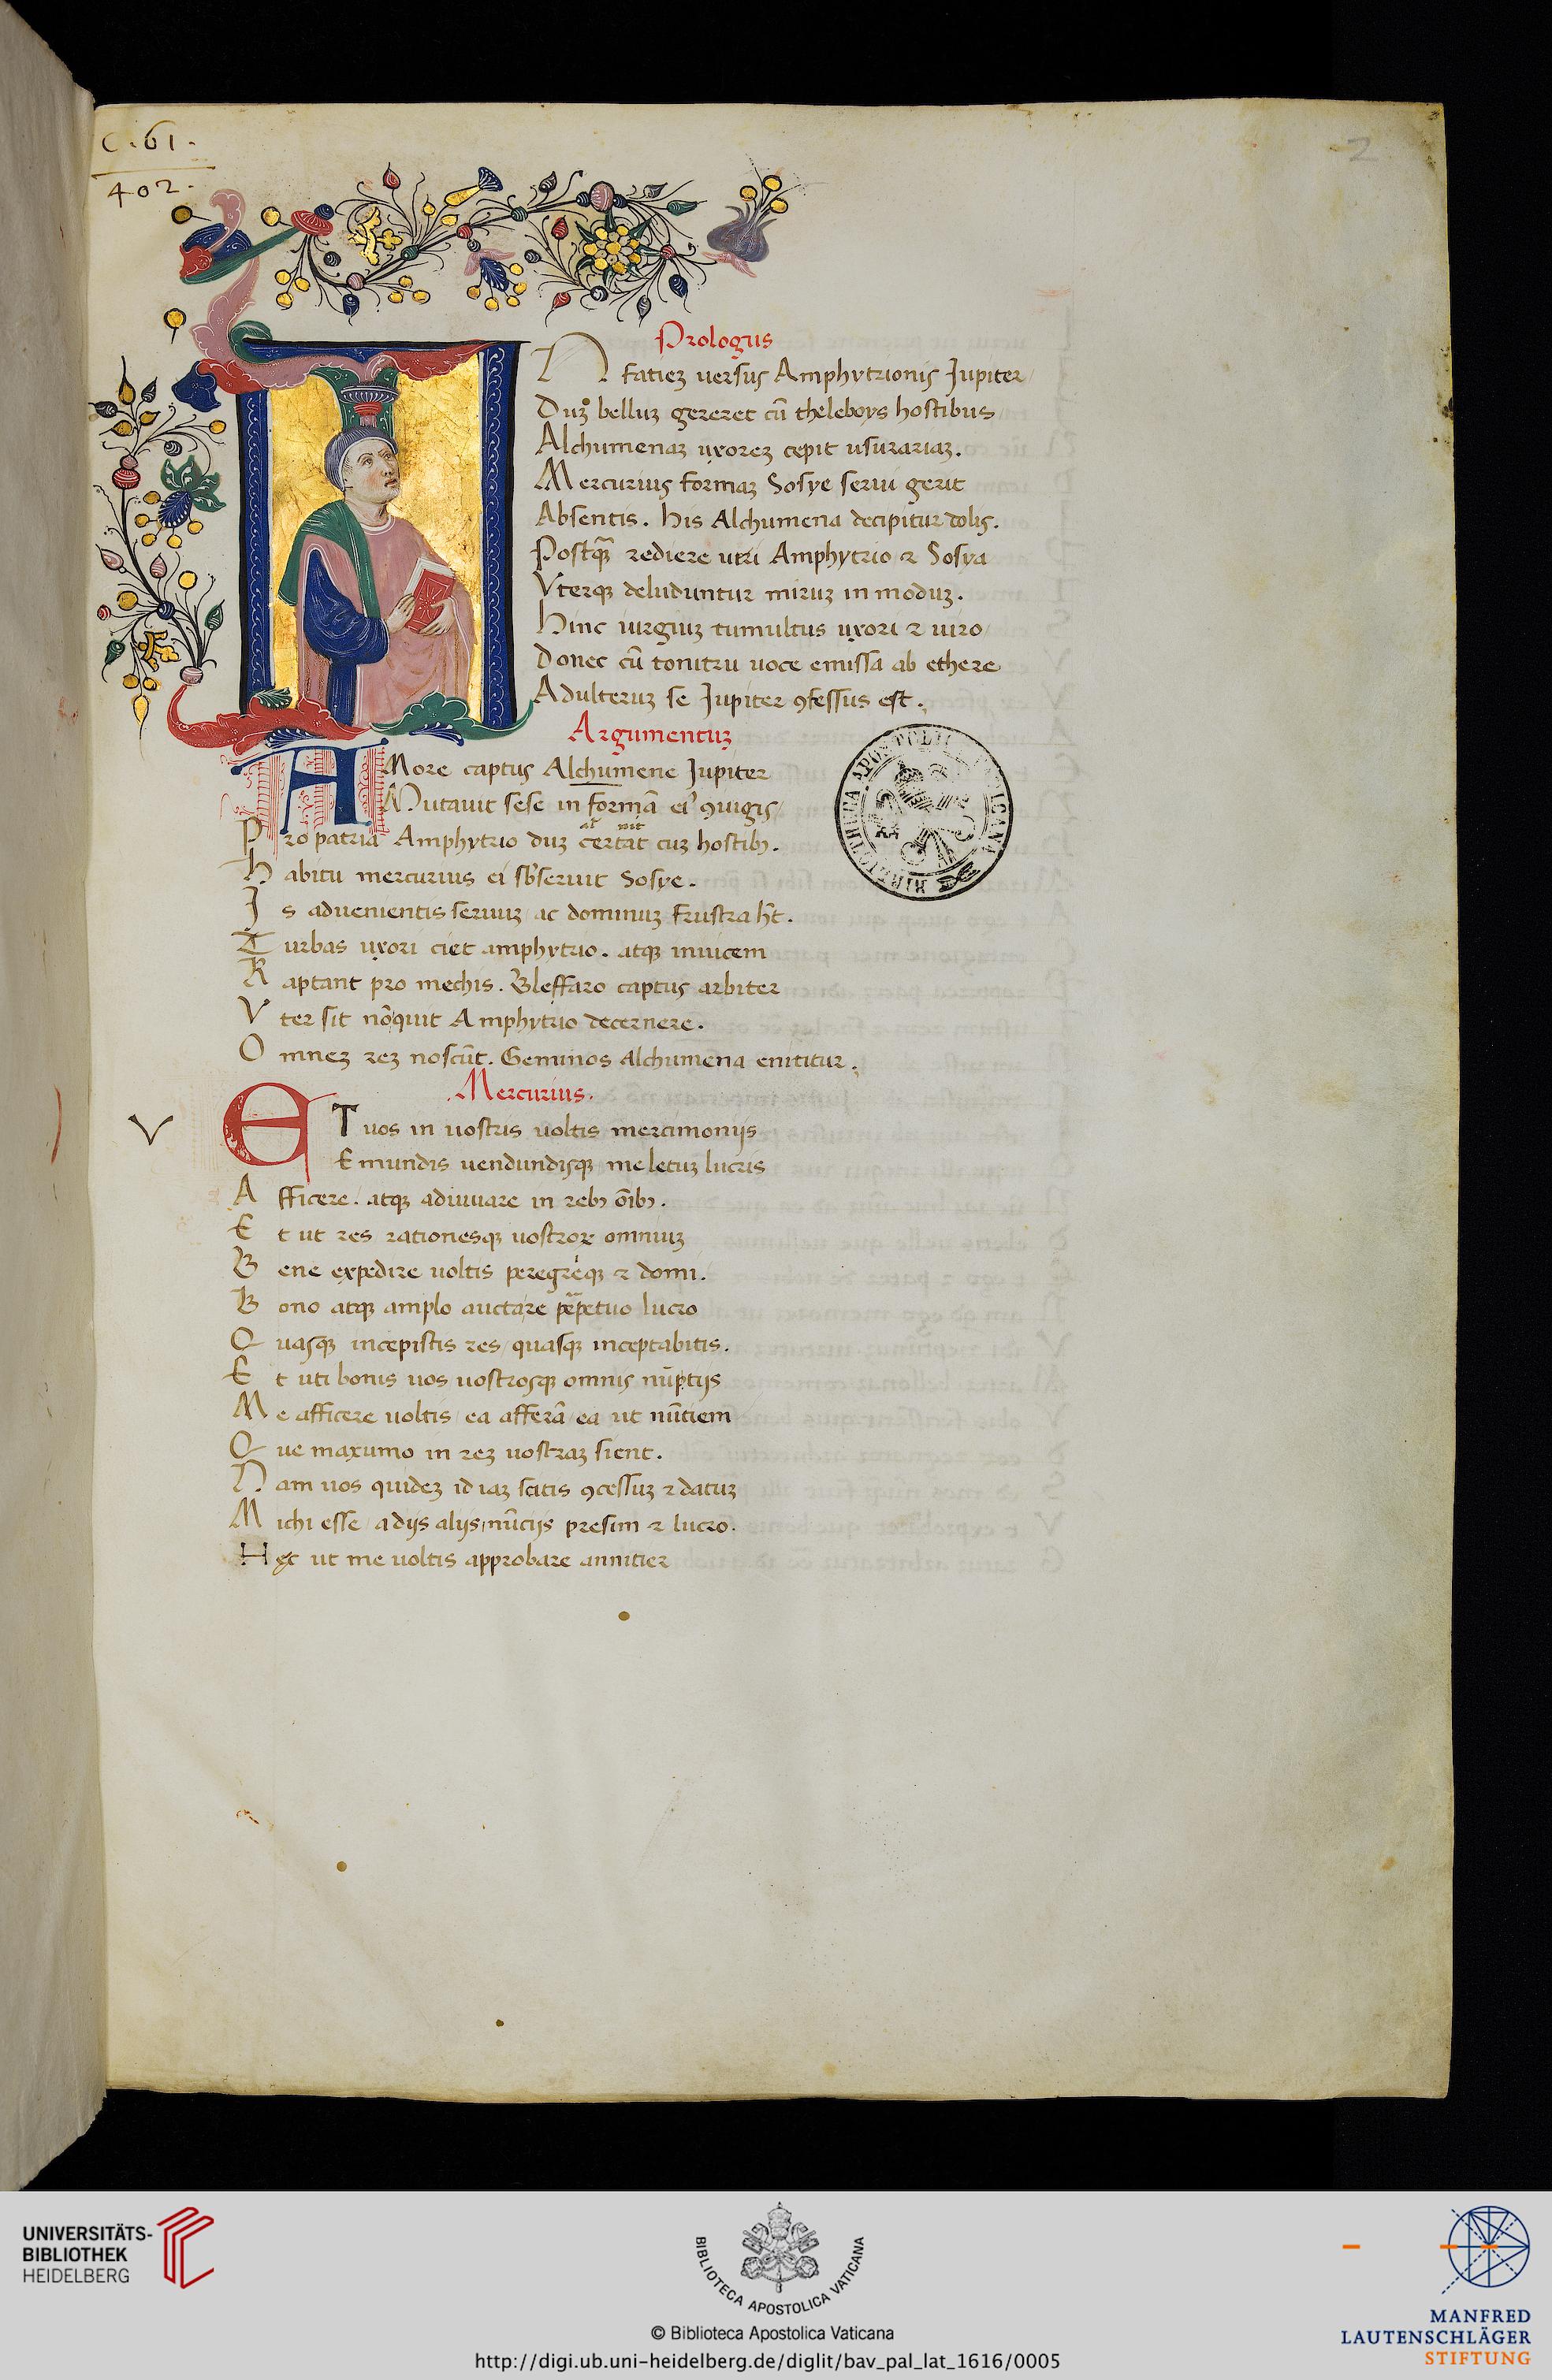 C. 61.
402.
2
Prologus
IN fatiez uersus Amphytrionis Jupiter
Duz belluz gereret cũ theleboys hostibus
Alchumenaz uxorez cepit usurariaz.
Mercurius formaz Sosye serui gerit
Absentis. his Alchumena decipitur dolis.
Postqꝫ rediere utri Amphytrio ⁊ Sosya
Vterqꝫ deluduntur miruz in moduz.
Hinc iurgiuz tumultus uxori ⁊ uiro
Donec cũ tonitru uoce emissa ab ethere
Adulteruz se Jupiter ꝯfessus est.
Argumentuz
AMore captus Alchumene Jupiter
Mutauit sese in formã eiꝰ ꝯiugis
Pro patria Amphytrio duz certat cuz hostibꝫ.
Habitu mercurius ei sb̾seruit Sosye.
Is aduenientis seruuz ac dominuz frustra hꝫt.
Turbas uxori ciet amphytrio. atqꝫ inuicem
Raptant pro mechis. Bleffaro captus arbiter
Vter sit nõ quit Amphytrio decernere.
Omnez rez noscũt. Geminos Alchumena enititur.
Mercurius.
V
ET uos in uostris uoltis mercimoniis
Emundis uendundisqꝫ me letuz lucris
Afficere. atqꝫ adiuuare in rebꝫ õibꝫ.
Et ut res rationesqꝫ uostroꝝ omniuz
Bene expedire uoltis peregreqꝫ ⁊ domi.
Bono atqꝫ amplo auctare perpetuo lucro
Quasqꝫ incepistis res quasqꝫ inceptabitis.
Et uti bonis uos uostrosqꝫ omnis nũptiis
Me afficere uoltis ea afferã ea ut nũtiem
Que maxumo in rez uostraz sient.
Nam uos quidez id iaz scitis ꝯcessuz ⁊ datuz
Michi esse a diis aliis nũciis presim ⁊ lucro.
Hęc ut me uoltis approbare annitier
UNIVERSITÄTS-
BIBLIOTHEK
HEIDELBERG
BIBLIOTECA APOSTOLICA VATICANA
© Biblioteca Apostolica Vaticana
http://digi.ub.uni-heidelberg.de/diglit/bav_pal_lat_1616/0005
MANFRED
LAUTENSCHLÄGER
STIFTUNG